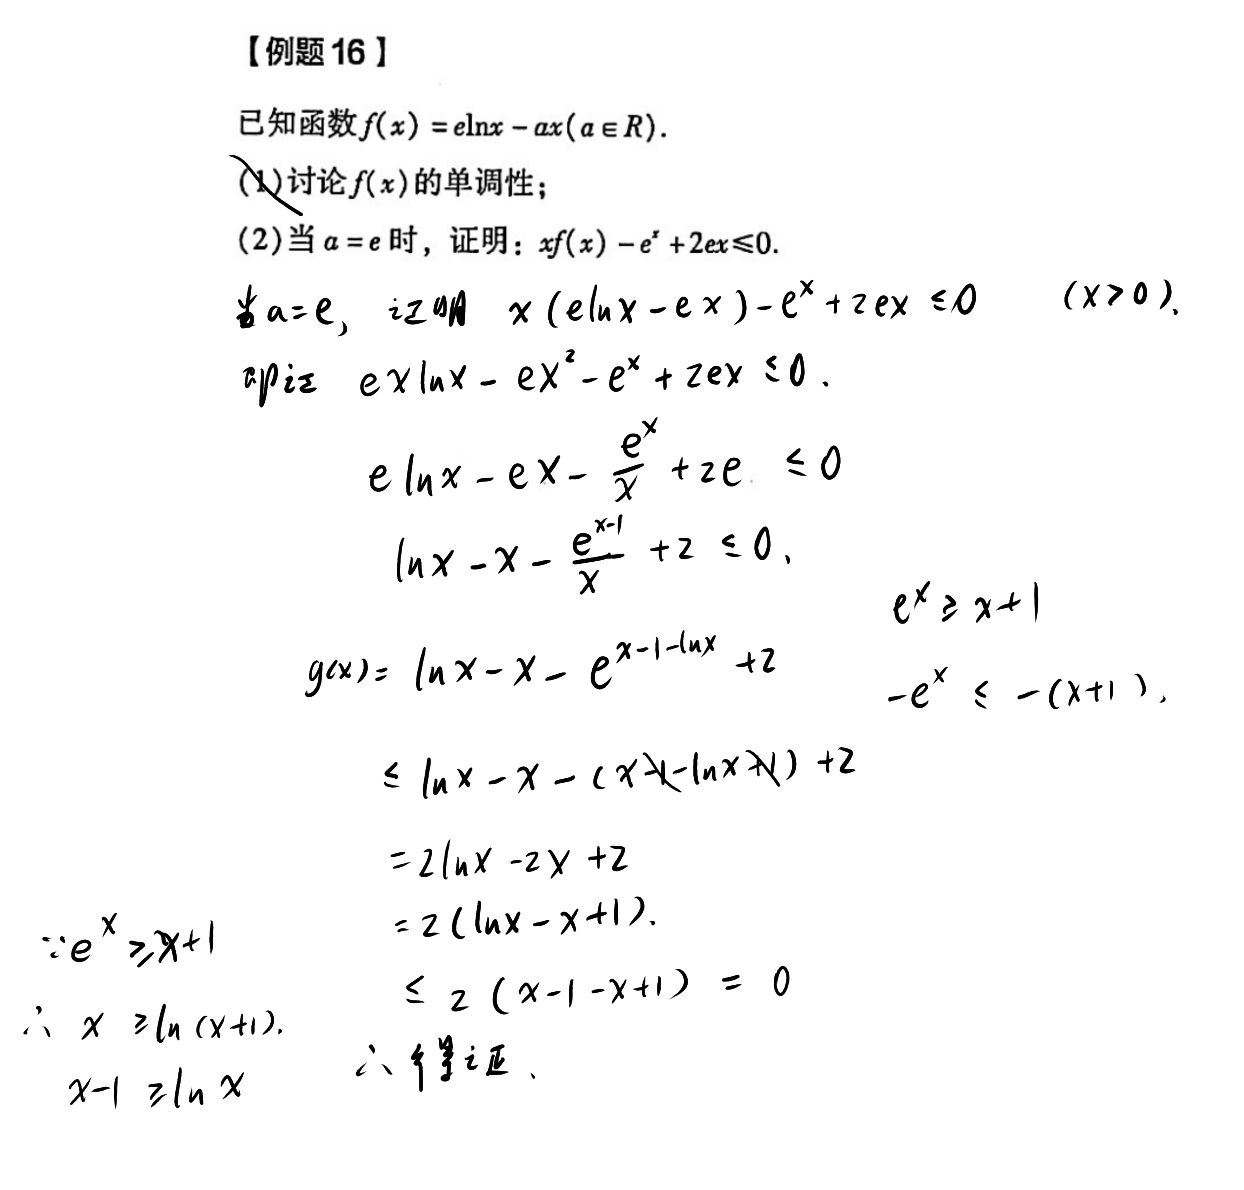 【例题16】
已知函数f(x)=elnx-ax(a∈R).
(1)讨论f(x)的单调性;
(2)当a=e时,证明:xf(x)-eˣ+2ex≤0.
当a=e, 证明 x(elnx-ex)-eˣ+2ex≤0 (x>0).
即证 exlnx-ex²-eˣ+2ex≤0.
elnx-ex-eˣ/x+2e≤0
lnx-x-eˣ⁻¹/x+2≤0,
eˣ≥x+1
g(x)=lnx-x-e^(x-1-lnx)+2
-eˣ≤-(x+1),
≤lnx-x-(x-1-lnx+1)+2
=2lnx-2x+2
=2(lnx-x+1).
∵eˣ≥x+1
≤2(x-1-x+1)=0
∴x≥ln(x+1).
∴得证.
x-1≥lnx